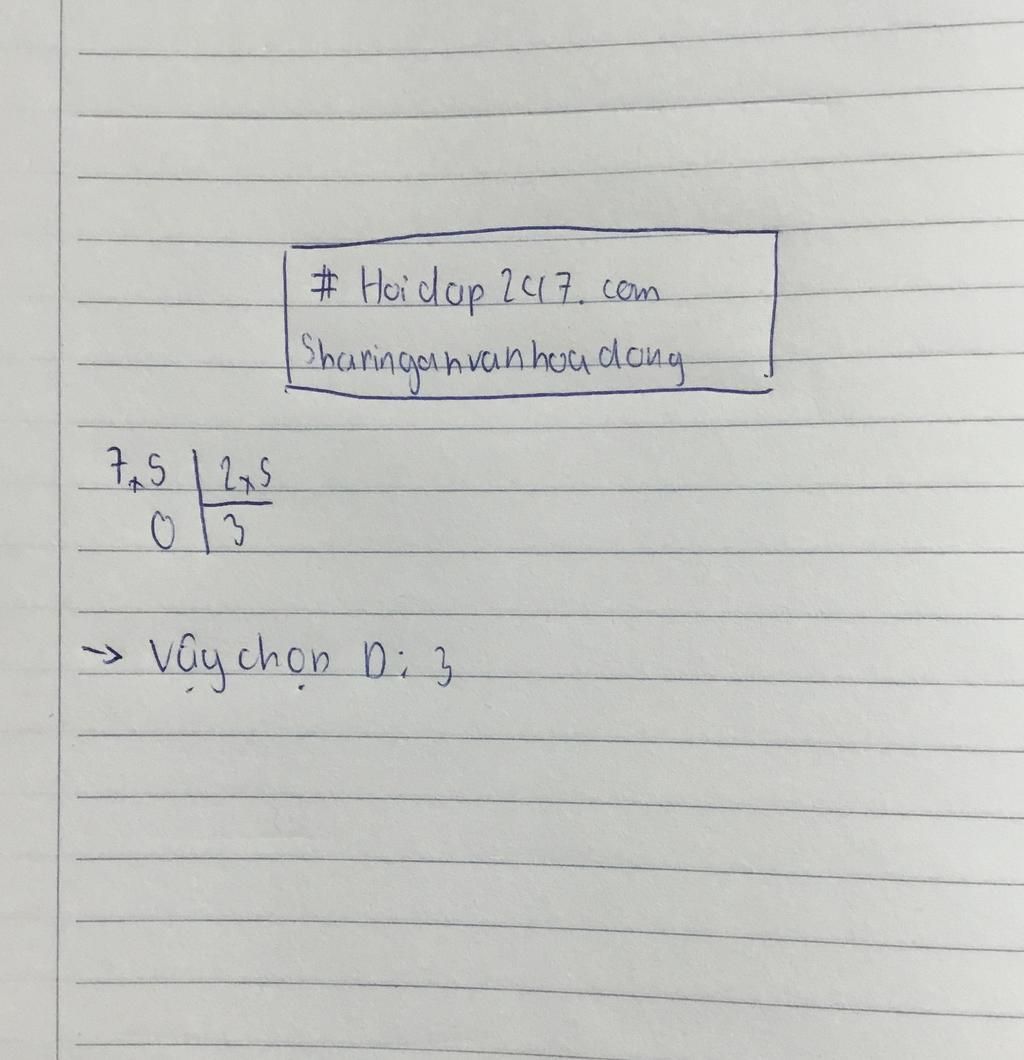 # Hoidap247.com
Sharinganvanhoadong
7,5 | 2,5
0 | 3
→ Vậy chọn D: 3